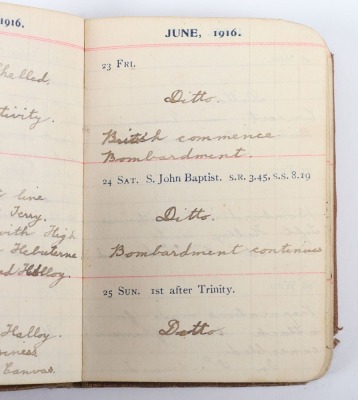 1916.
shelled.
tivity.
line
Terry.
with High
Hebuterne
nd Halloy.
Halloy.
Canvas.
JUNE, 1916.
23 FRI.
Ditto.
British commence
Bombardment.
24 SAT. S. John Baptist. S.R. 3.45, S.S. 8.19
Ditto.
Bombardment continues
25 SUN. 1st after Trinity.
Detto.